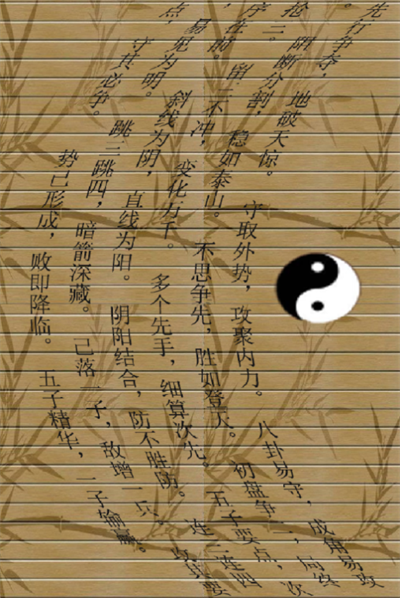 先行争夺，地破天惊。守取外势，攻聚内力。八卦易守，成角易攻
阻断分割，稳如泰山。不思争先，胜如登天。初盘争二，局终
抢三。留三不冲，变化万千。多个先手，细算次先。五子要点，次
序在前。斜线为阴，直线为阳。阴阳结合，防不胜防。连三连四
易见为明。跳三跳四，暗箭深藏。己落一子，敌增一兵，攻其要
点 守其必争。势已形成，败即降临。五子精华，一子输赢。